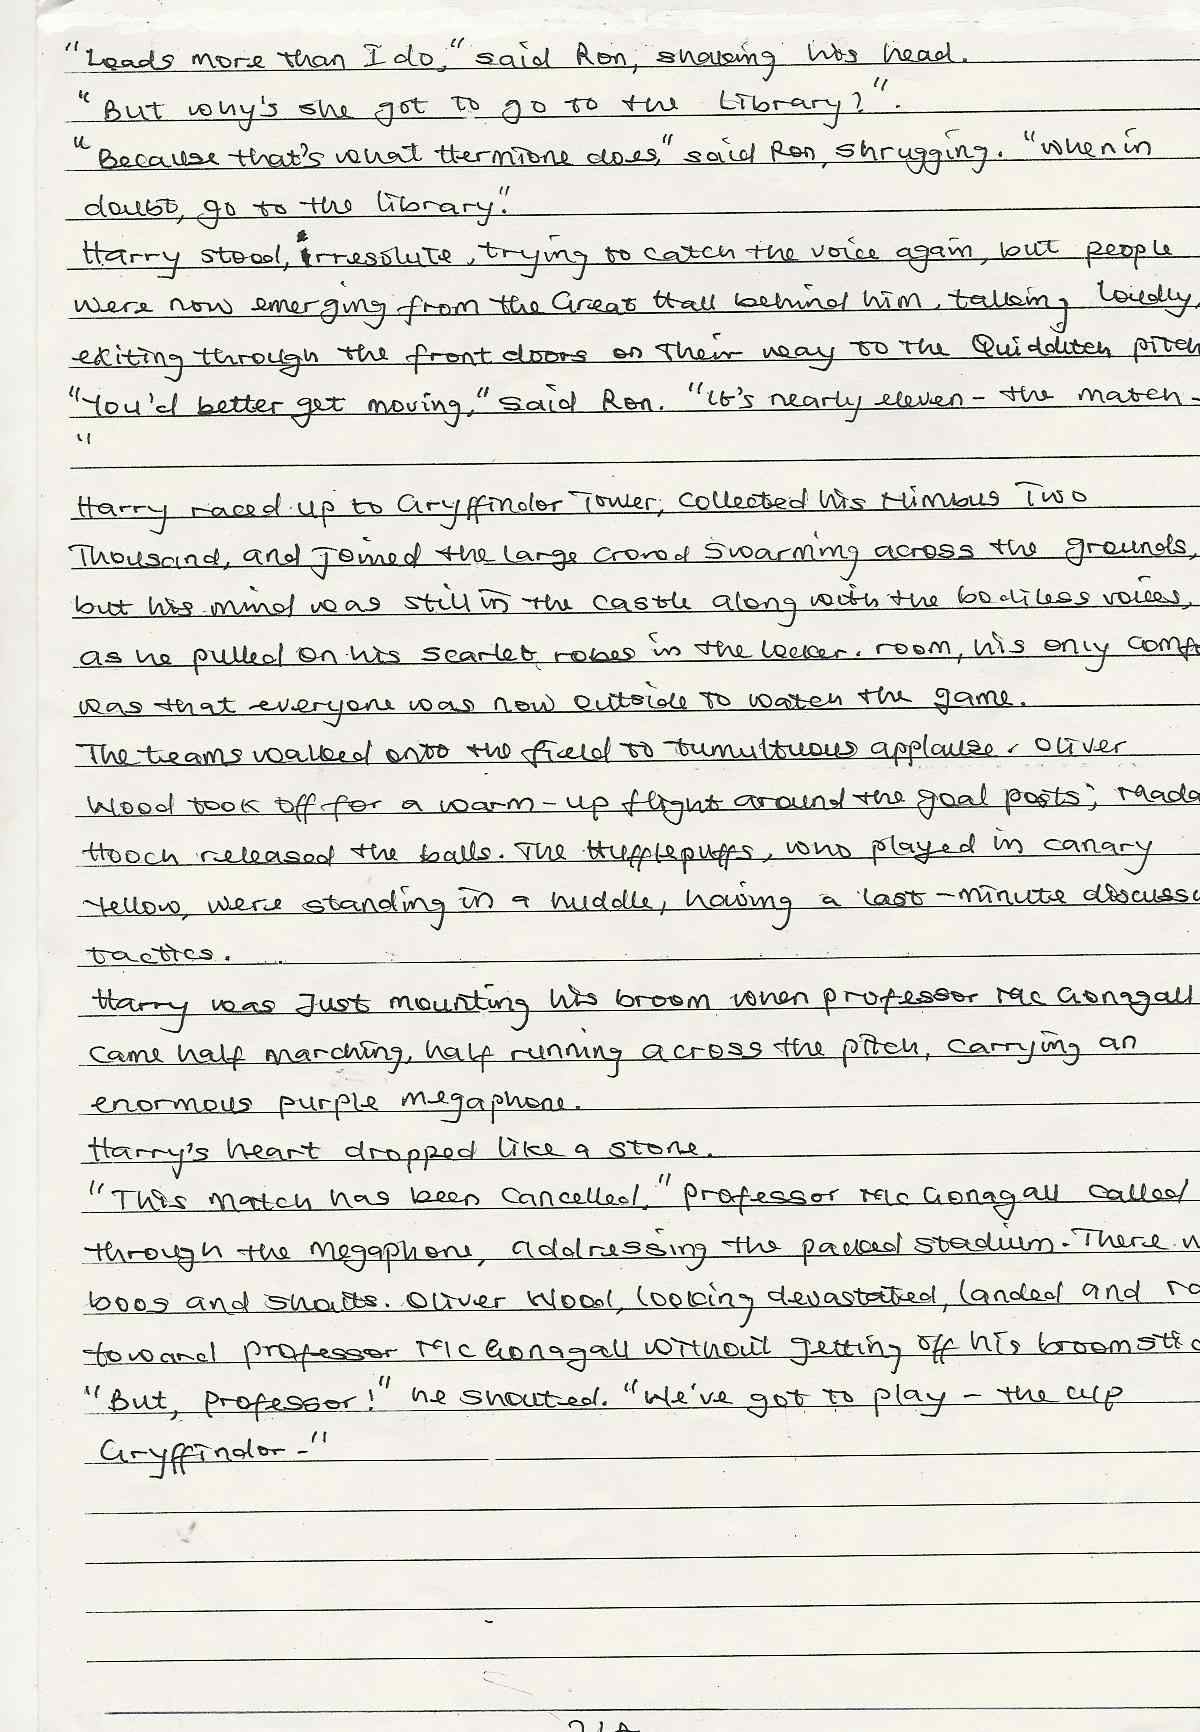 "Loads more than I do," said Ron, shaking his head.
"But why's she got to go to the library?".
"Because that's what Hermione does," said Ron, shrugging. "When in
doubt, go to the library."
Harry stood, irresolute, trying to catch the voice again, but people
were now emerging from the Great Hall behind him, talking loudly,
exiting through the front doors on their way to the Quidditch pitch
"You'd better get moving," said Ron. "It's nearly eleven - the match -
"
Harry raced up to Gryffindor Tower, collected his Nimbus Two
Thousand, and joined the large crowd swarming across the grounds,
but his mind was still in the castle along with the bodiless voices,
as he pulled on his scarlet robes in the locker. room, his only comfo
was that everyone was now outside to watch the game.
The teams walked onto the field to tumultuous applause. Oliver
Wood took off for a warm-up flight around the goal posts; Mada
Hooch released the balls. The Hufflepuffs, who played in canary
yellow, were standing in a huddle, having a last-minute discussi
tactics.
Harry was just mounting his broom when professor McGonagall
came half marching, half running across the pitch, carrying an
enormous purple megaphone.
Harry's heart dropped like a stone.
"This match has been cancelled," professor McGonagall called
through the megaphone, addressing the packed stadium. There w
boos and shouts. Oliver Wood, looking devastated, landed and ra
toward professor McGonagall without getting off his broomstic
"But, professor!" he shouted. "We've got to play - the cup
Gryffindor -"